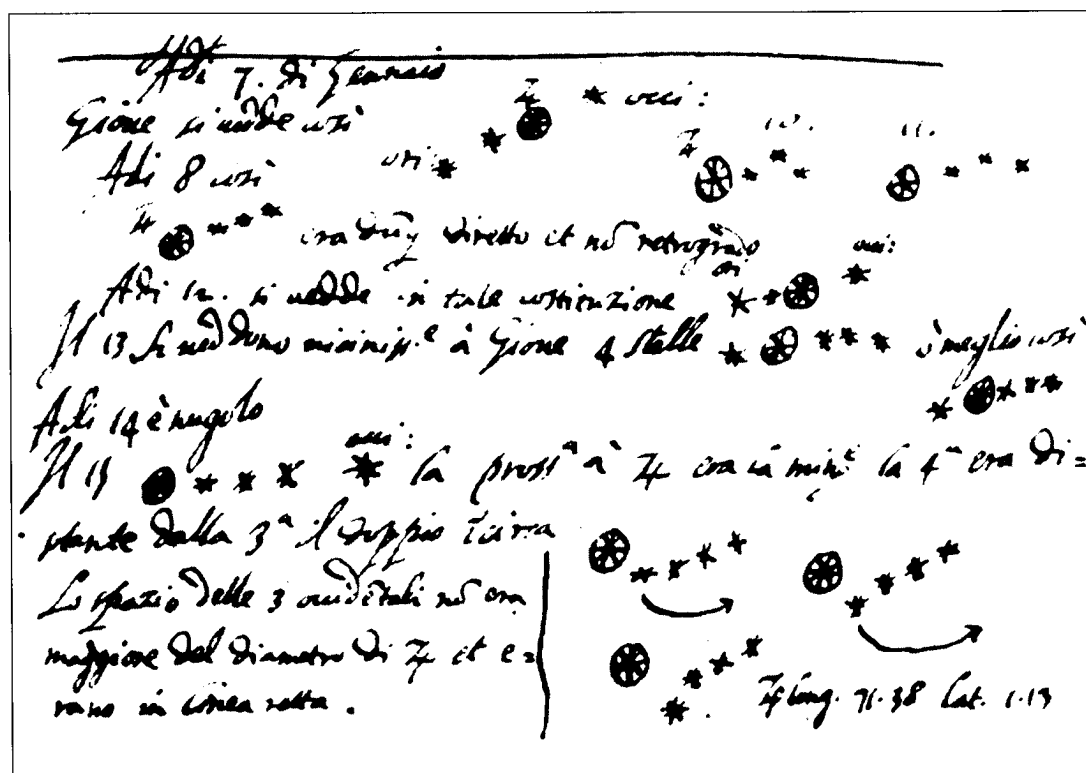 Adi 7. di Gennaio
Gione si vedde così
♃ * occi:
Adi 8 così
ori:
♃ 10. 11.
♃ era dūq diretto et nō retrogrado
ori occi:
Adi 12. si vedde in tale costituzione
Il 13 si veddono viciniss.e à Gione 4 stelle ò meglio così
Adi 14 è nugolo
occi:
Il 15 la pross.a à ♃ era la min.e la 4.a era di=
stante dalla 3.a il doppio in circa
Lo spazio delle 3 occidētali nō era
maggiore del diametro di ♃ et e=
rano in linea retta.
♃ long. 71.38 lat. 1.13